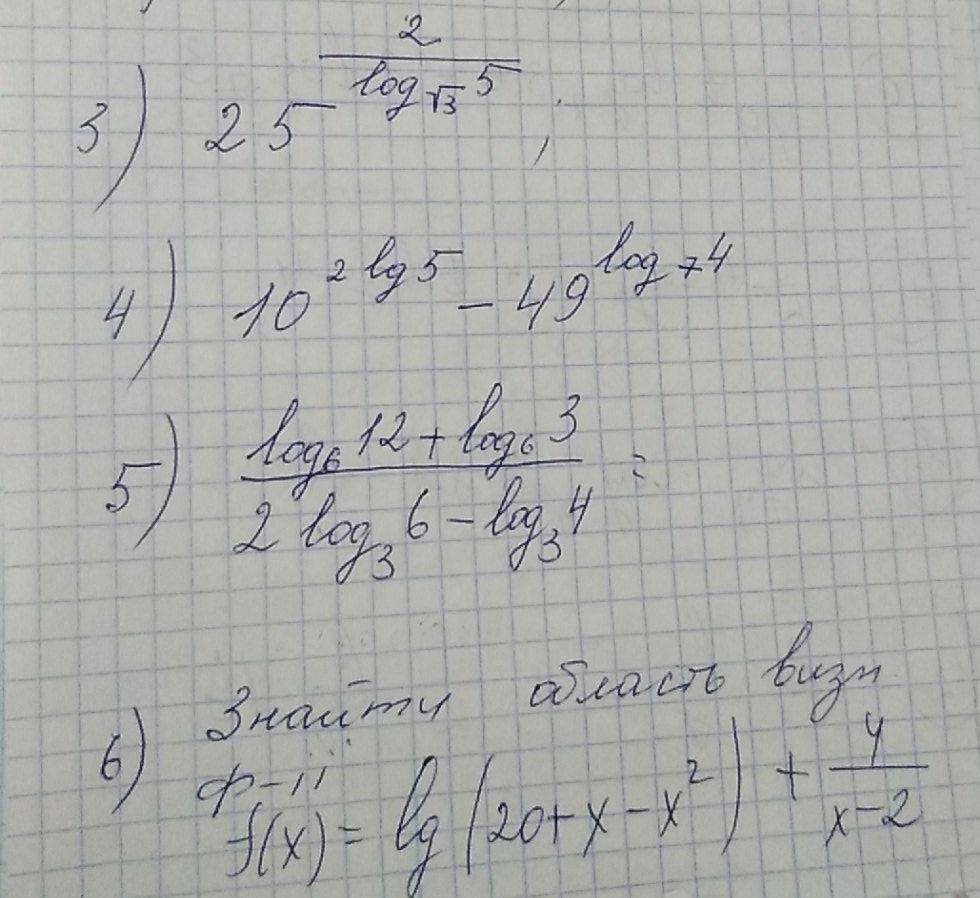 3) 25^{\frac{2}{\log_{\sqrt{3}} 5}} ;
4) 10^{2 lg 5} - 49^{log_7 4}
5) \frac{log_6 12 + log_6 3}{2 log_3 6 - log_3 4} =
6) Знайти область визн
ф-ії
f(x) = lg (20 + x - x^2) + \frac{4}{x-2}